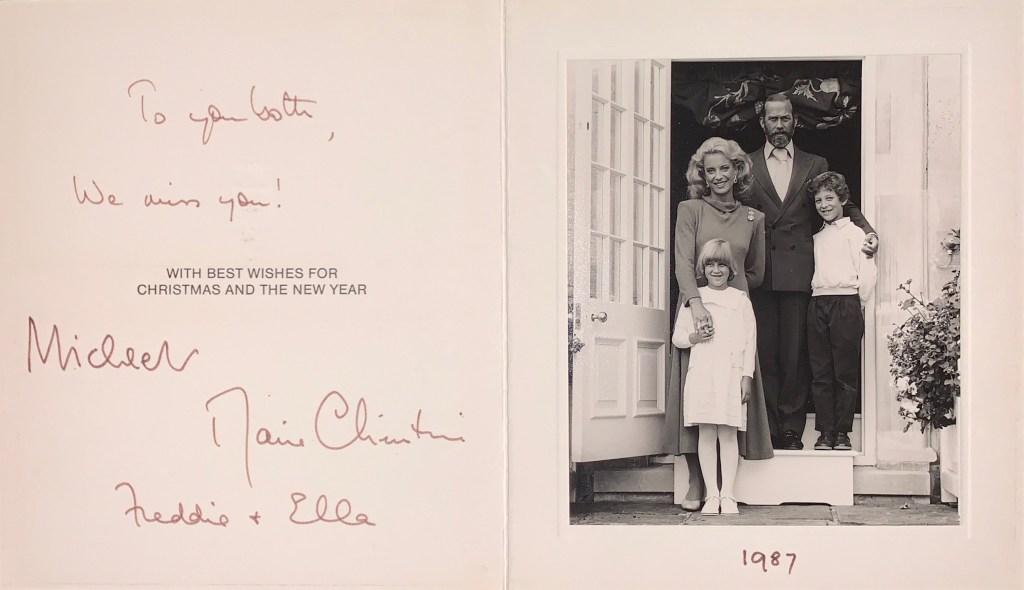 To you both,
We miss you!
WITH BEST WISHES FOR
CHRISTMAS AND THE NEW YEAR
Michael
Marie Christine
Freddie + Ella
1987